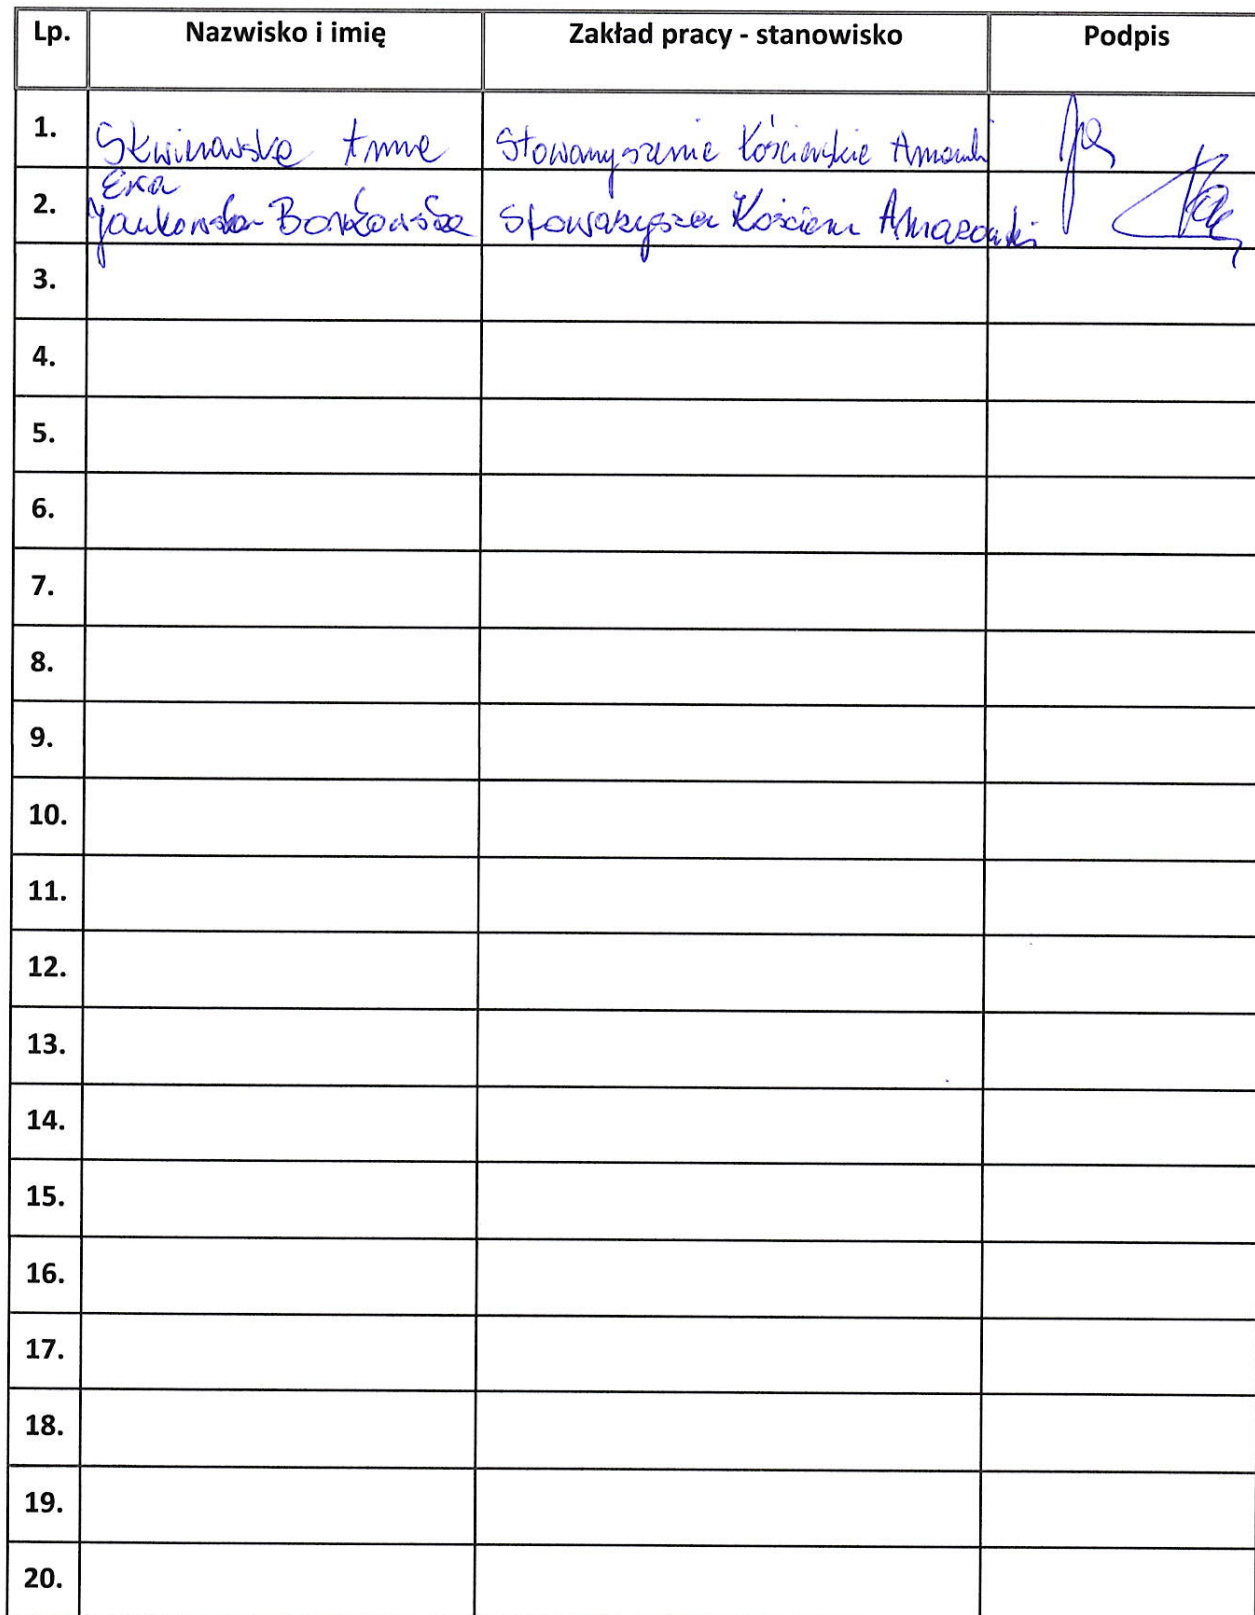 Lp. Nazwisko i imię Zakład pracy - stanowisko Podpis
1. Skwierawska Anna Stowarzyszenie Kościerskie Amazonki
Ewa
2. Jankowska-Borzkowska Stowarzyszen Kościers Amazonki
3.
4.
5.
6.
7.
8.
9.
10.
11.
12.
13.
14.
15.
16.
17.
18.
19.
20.